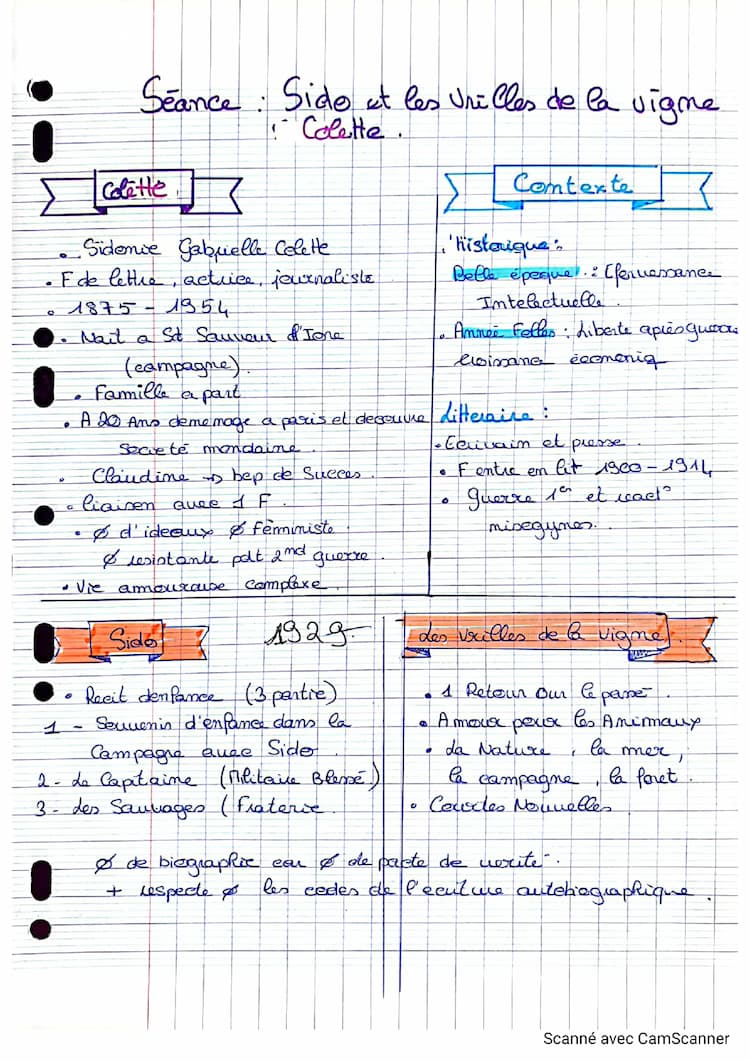 Séance : Sido et les vrilles de la vigne
: Colette.
Colette.
• Sidonie Gabrielle Colette
• F de lettre, actrice, journaliste
• 1875 - 1954
• Nait a St Sauveur d'Ione
(campagne).
• Famille a part
• A 20 Ans demenage a paris et decouvre
Societé mondaine.
• Claudine → bep de Succes.
• liaison avec 1 F.
• ø d'ideaux ø féministe.
ø resistante pdt 2nd guerre.
• Vie amoureuse complexe.
Contexte
• Historique :
Belle époque : Effervessance
Intelactuelle.
• Année Folles : Liberte après guerre
croissance économiq
Litteraire :
• Ecrivain et presse.
• F entre en lit 1900-1914
• Guerre 1er et react°
misogynes.
Sido 1929
• Recit denfance (3 partie)
1 - Souvenir d'enfance dans la
Campagne avec Sido.
2 - Le Capitaine (Militaire Blessé)
3 - Les Sauvages (Fraterie.
Les vrilles de la vigne
• 1 Retour sur le passé.
• Amour pour les Animaux
• La Nature, la mer,
la campagne, la foret.
• Courtes Nouvelles
ø de biographie car ø de pacte de verité.
+ respecte ø les codes de l'ecriture autobiographique.
Scanné avec CamScanner